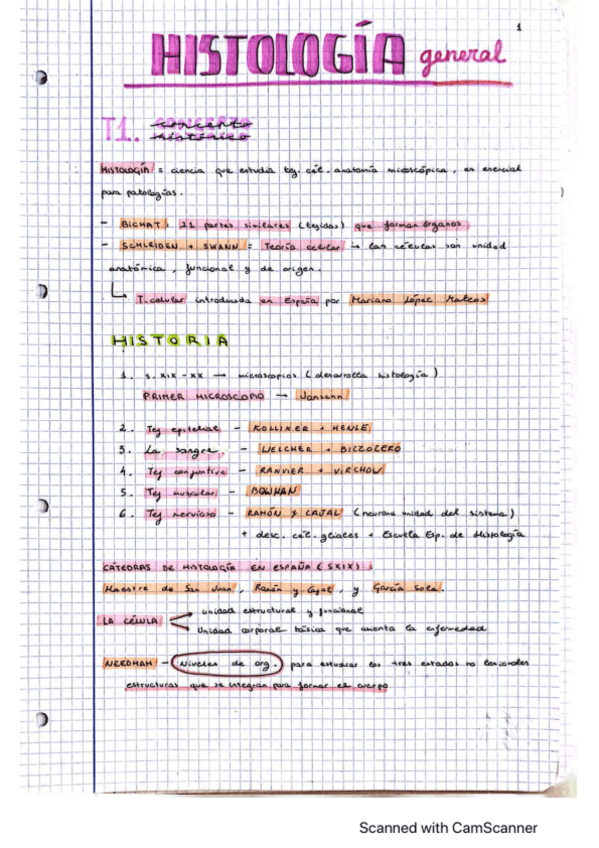 1
HISTOLOGÍA general
T1. CONCEPTO
HISTÓRICO
HISTOLOGÍA = ciencia que estudia tej. cél. anatomía microscópica, es esencial
para patologías.
- BICHAT: 21 partes similares (tejidos) que forman órganos
- SCHLEIDEN + SWANN = Teoría celular → las células son unidad
anatómica, funcional y de origen.
↳ T. celular introducida en España por Mariano López Mateos
HISTORIA
1. S. XIX - XX → microscopios (desarrolla histología)
PRIMER MICROSCOPIO → Janssen
2. Tej epitelial - KOLLIKER + HENLE
3. La sangre - WELCHER + BIZZOZERO
4. Tej conjuntivo - RANVIER + VIRCHOW
5. Tej muscular - BOWMAN
6. Tej nervioso - RAMÓN Y CAJAL (neurona unidad del sistema)
+ desc. cél. gliales + Escuela Esp. de Histología
CÁTEDRAS DE HISTOLOGÍA EN ESPAÑA (SXIX):
Maestre de San Juan, Ramón y Cajal, y García Sola.
LA CÉLULA unidad estructural y funcional
Unidad corporal básica que asienta la enfermedad
NEEDHAM - Niveles de org. para estudiar los tres estados no lesionales
estructuras que se integran para formar el cuerpo
Scanned with CamScanner